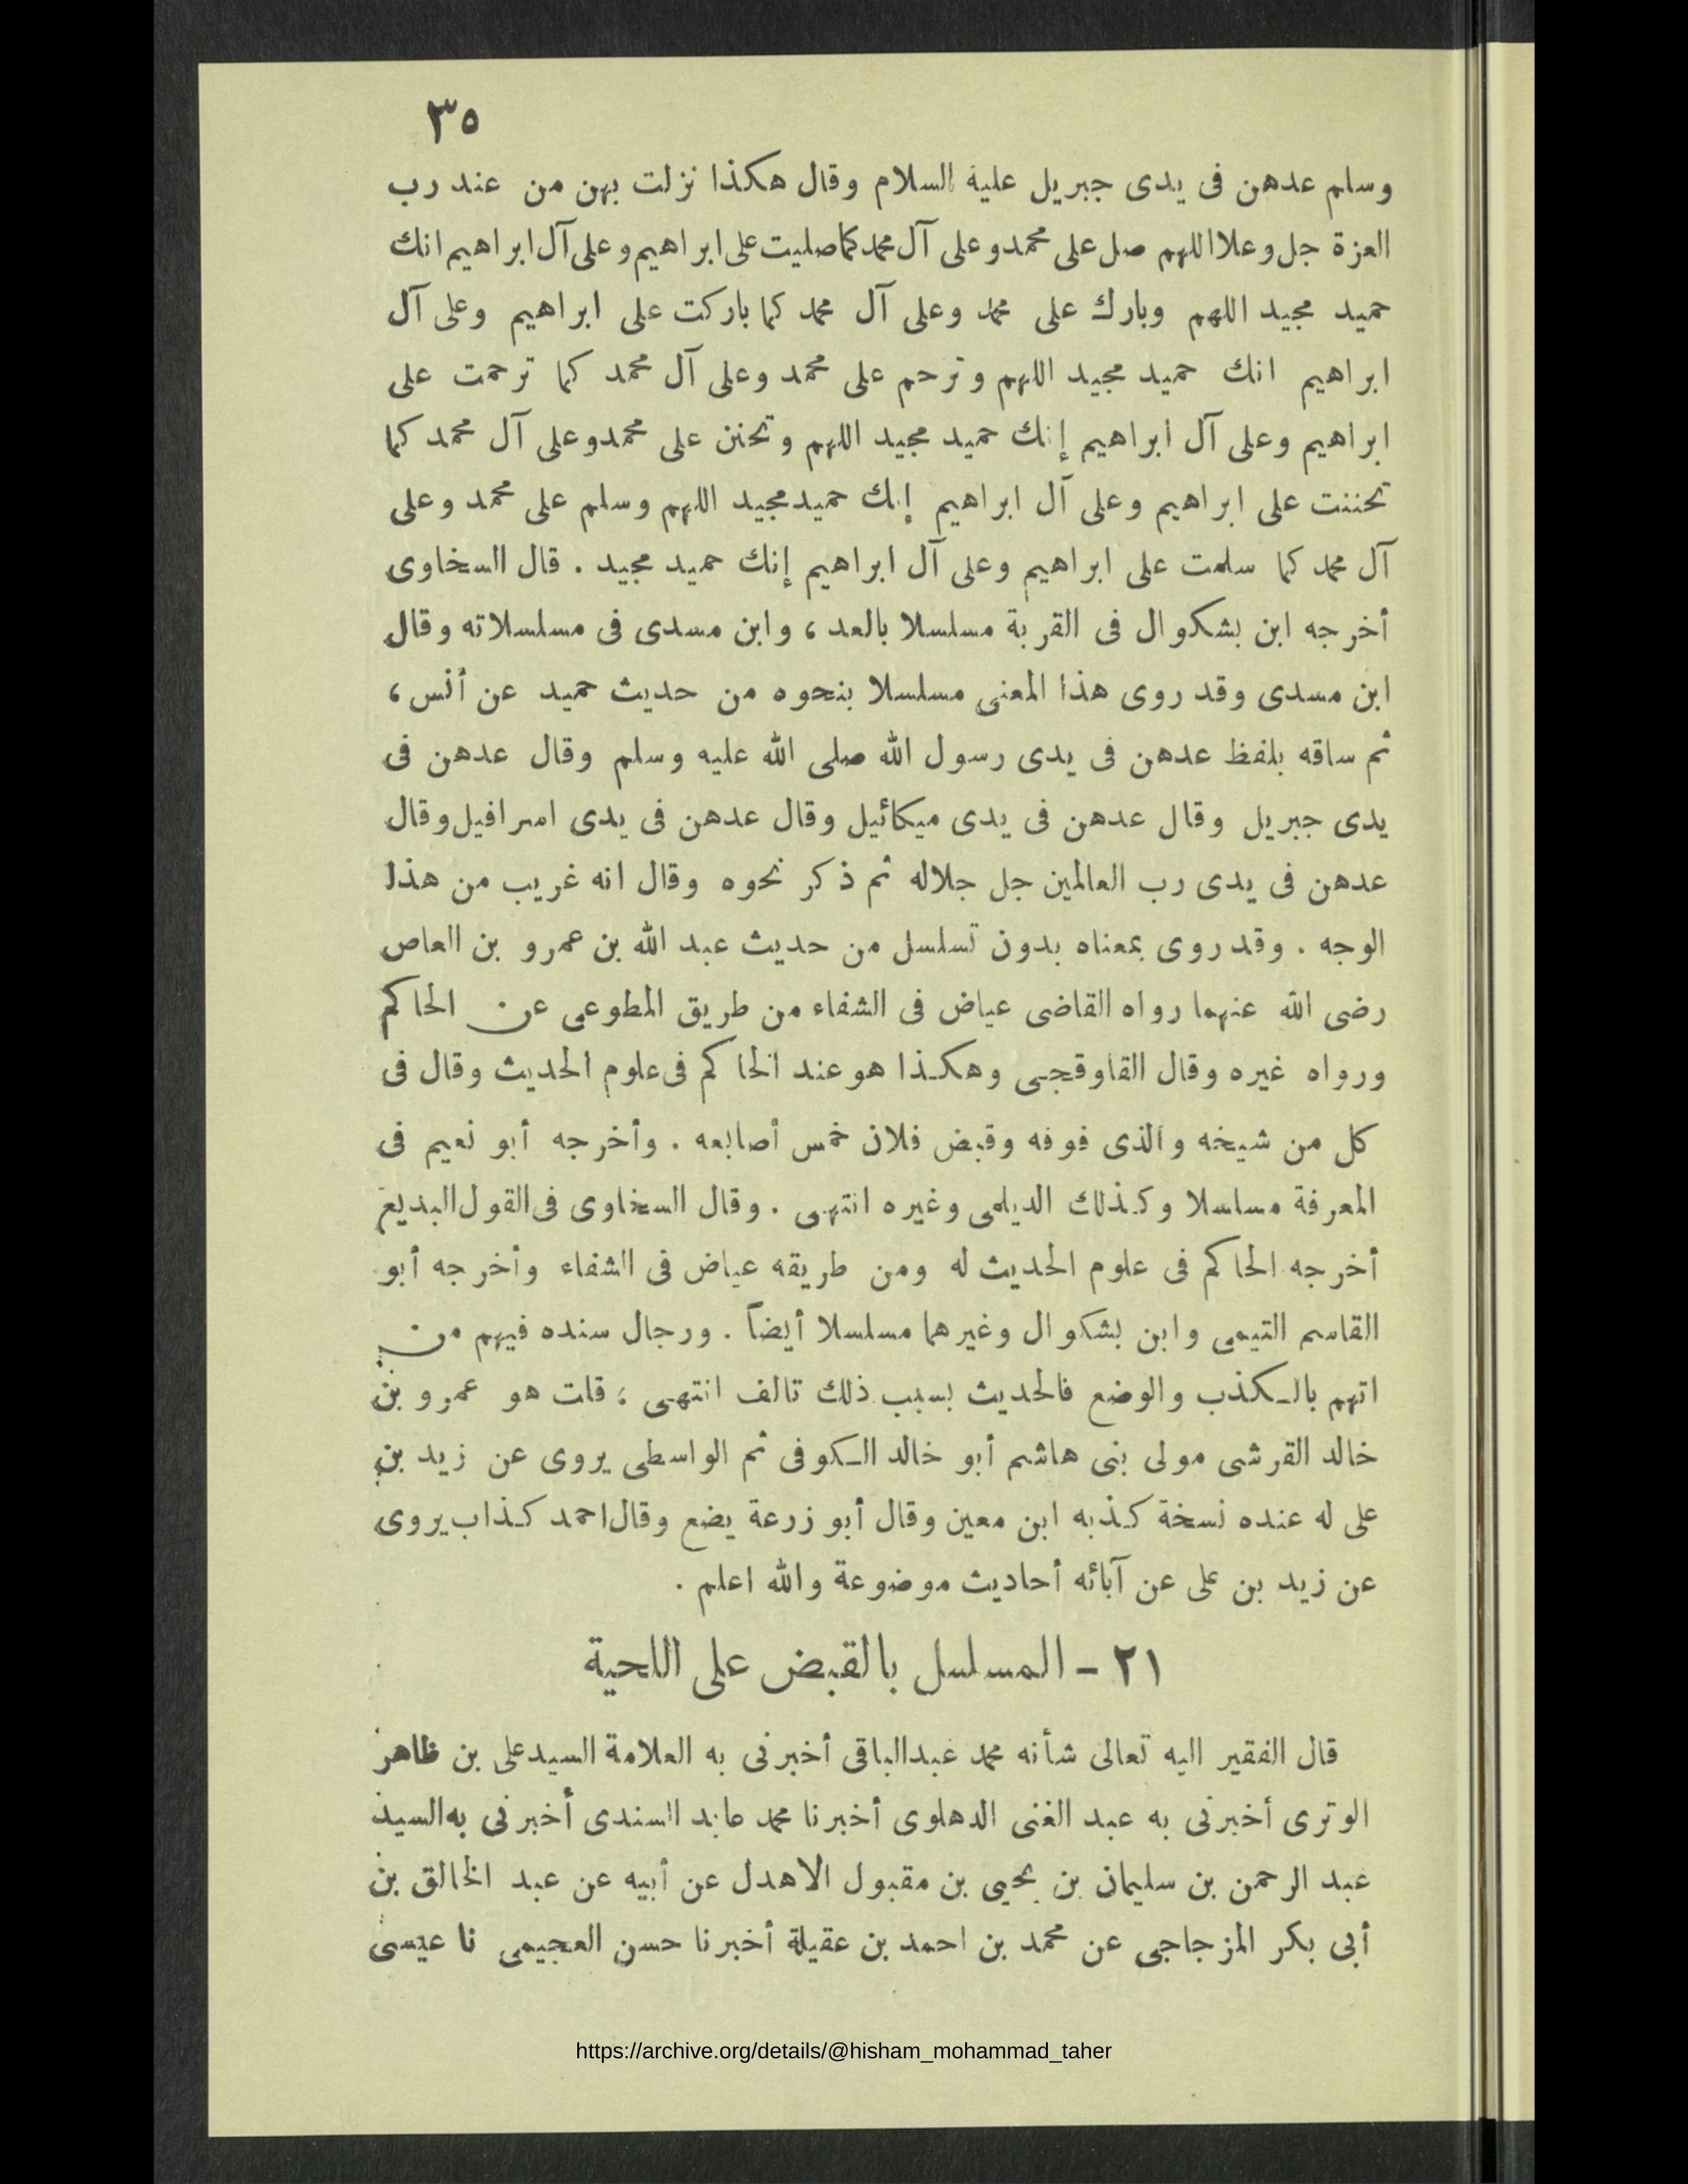 ٣٥
وسلم عدهن فى يدى جبريل عليه السلام وقال هكذا نزلت بهن من عند رب
العزة جل وعلا اللهم صل على محمد وعلى آل محمد كما صليت على ابراهيم وعلى آل ابراهيم انك
حميد مجيد اللهم وبارك على محمد وعلى آل محمد كما باركت على ابراهيم وعلى آل
ابراهيم انك حميد مجيد اللهم وترحم على محمد وعلى آل محمد كما ترحمت على
ابراهيم وعلى آل ابراهيم إنك حميد مجيد اللهم وتحنن على محمد وعلى آل محمد كما
تحننت على ابراهيم وعلى آل ابراهيم إنك حميد مجيد اللهم وسلم على محمد وعلى
آل محمد كما سلمت على ابراهيم وعلى آل ابراهيم إنك حميد مجيد . قال السخاوى
أخرجه ابن بشكوال فى القربة مسلسلا بالعد ، وابن مسدى فى مسلسلاته وقال
ابن مسدى وقد روى هذا المعنى مسلسلا بنحوه من حديث حميد عن أنس ،
ثم ساقه بلفظ عدهن فى يدى رسول الله صلى الله عليه وسلم وقال عدهن فى
يدى جبريل وقال عدهن فى يدى ميكائيل وقال عدهن فى يدى اسرافيل وقال
عدهن فى يدى رب العالمين جل جلاله ثم ذكر نحوه وقال انه غريب من هذا
الوجه . وقد روى بمعناه بدون تسلسل من حديث عبد الله بن عمرو بن العاص
رضى الله عنهما رواه القاضى عياض فى الشفاء من طريق المطوعى عن الحاكم
ورواه غيره وقال القاوقجى وهكذا هو عند الحاكم فى علوم الحديث وقال فى
كل من شيخه والذى فوقه وقبض فلان خمس أصابعه . وأخرجه أبو نعيم فى
المعرفة مسلسلا وكذلك الديلمى وغيره انتهى . وقال السخاوى فى القول البديع
أخرجه الحاكم فى علوم الحديث له ومن طريقه عياض فى الشفاء وأخرجه أبو
القاسم التيمى وابن بشكوال وغيرهما مسلسلا أيضاً . ورجال سنده فيهم من
اتهم بالكذب والوضع فالحديث بسبب ذلك تالف انتهى ؛ قلت هو عمرو بن
خالد القرشى مولى بنى هاشم أبو خالد الكوفى ثم الواسطى يروى عن زيد بن
على له عنده نسخة كذبه ابن معين وقال أبو زرعة يضع وقال احمد كذاب يروى
عن زيد بن على عن آبائه أحاديث موضوعة والله اعلم .
٢١ - المسلسل بالقبض على اللحية
قال الفقير اليه تعالى شأنه محمد عبد الباقى أخبرنى به العلامة السيد على بن ظاهر
الوترى أخبرنى به عبد الغنى الدهلوى أخبرنا محمد عابد السندى أخبرنى به السيد
عبد الرحمن بن سليمان بن يحيى بن مقبول الاهدل عن أبيه عن عبد الخالق بن
أبى بكر المزجاجى عن محمد بن احمد بن عقيلة أخبرنا حسن العجيمى نا عيسى
https://archive.org/details/@hisham_mohammad_taher